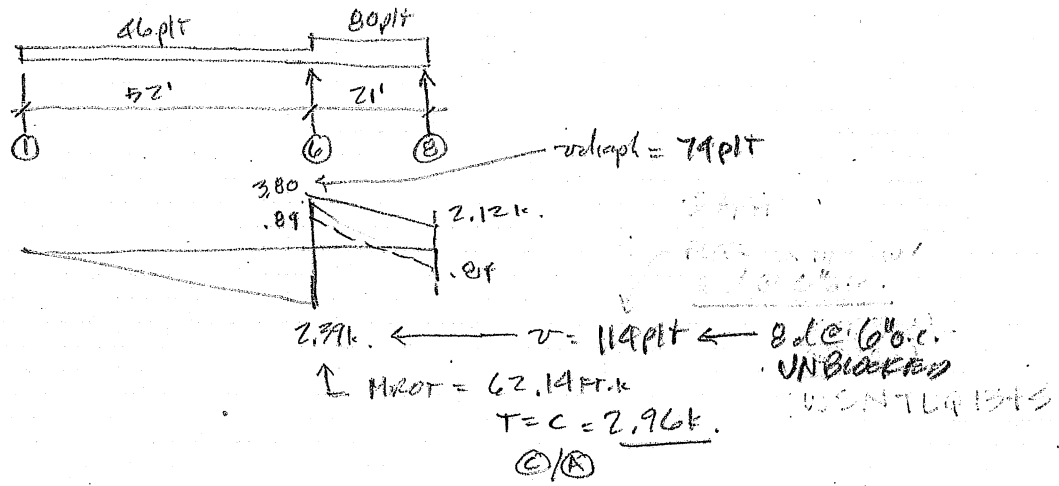 46plf 80plf
52' 21'
① ⑥ ⑧
vdiaph = 74plf
3.80
.89
2.12k.
.84
2.39k. ← v = 114plf ← 8d@6"o.c.
UNBLOCKED
MROT = 62.14 FT.k
T=C = 2.96k.
Ⓒ/Ⓐ